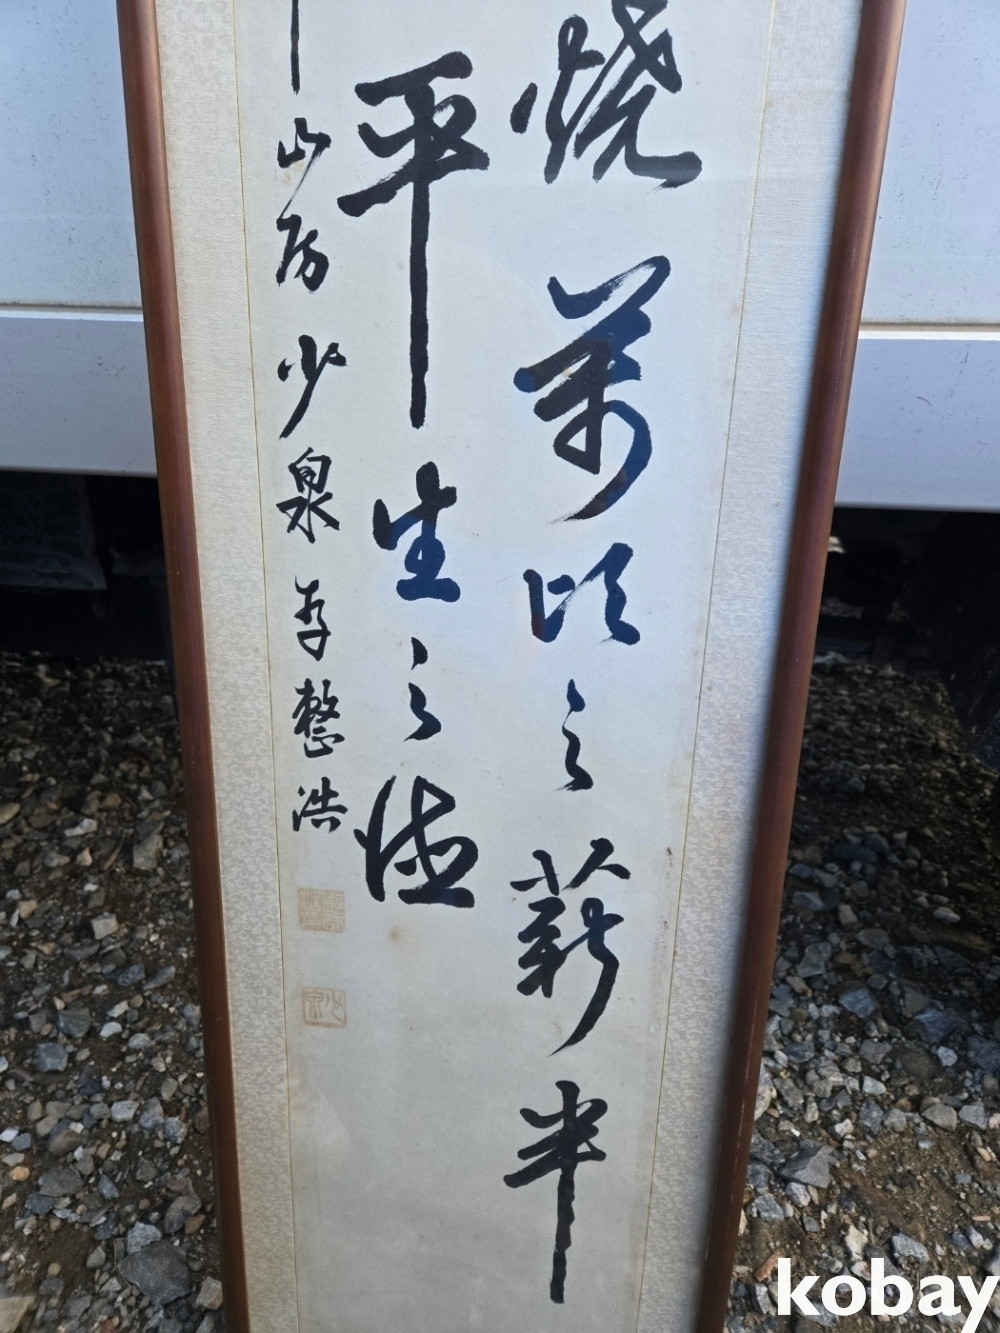 燒萬頃之薪半
平生之德
山房少泉李整浩
kobay